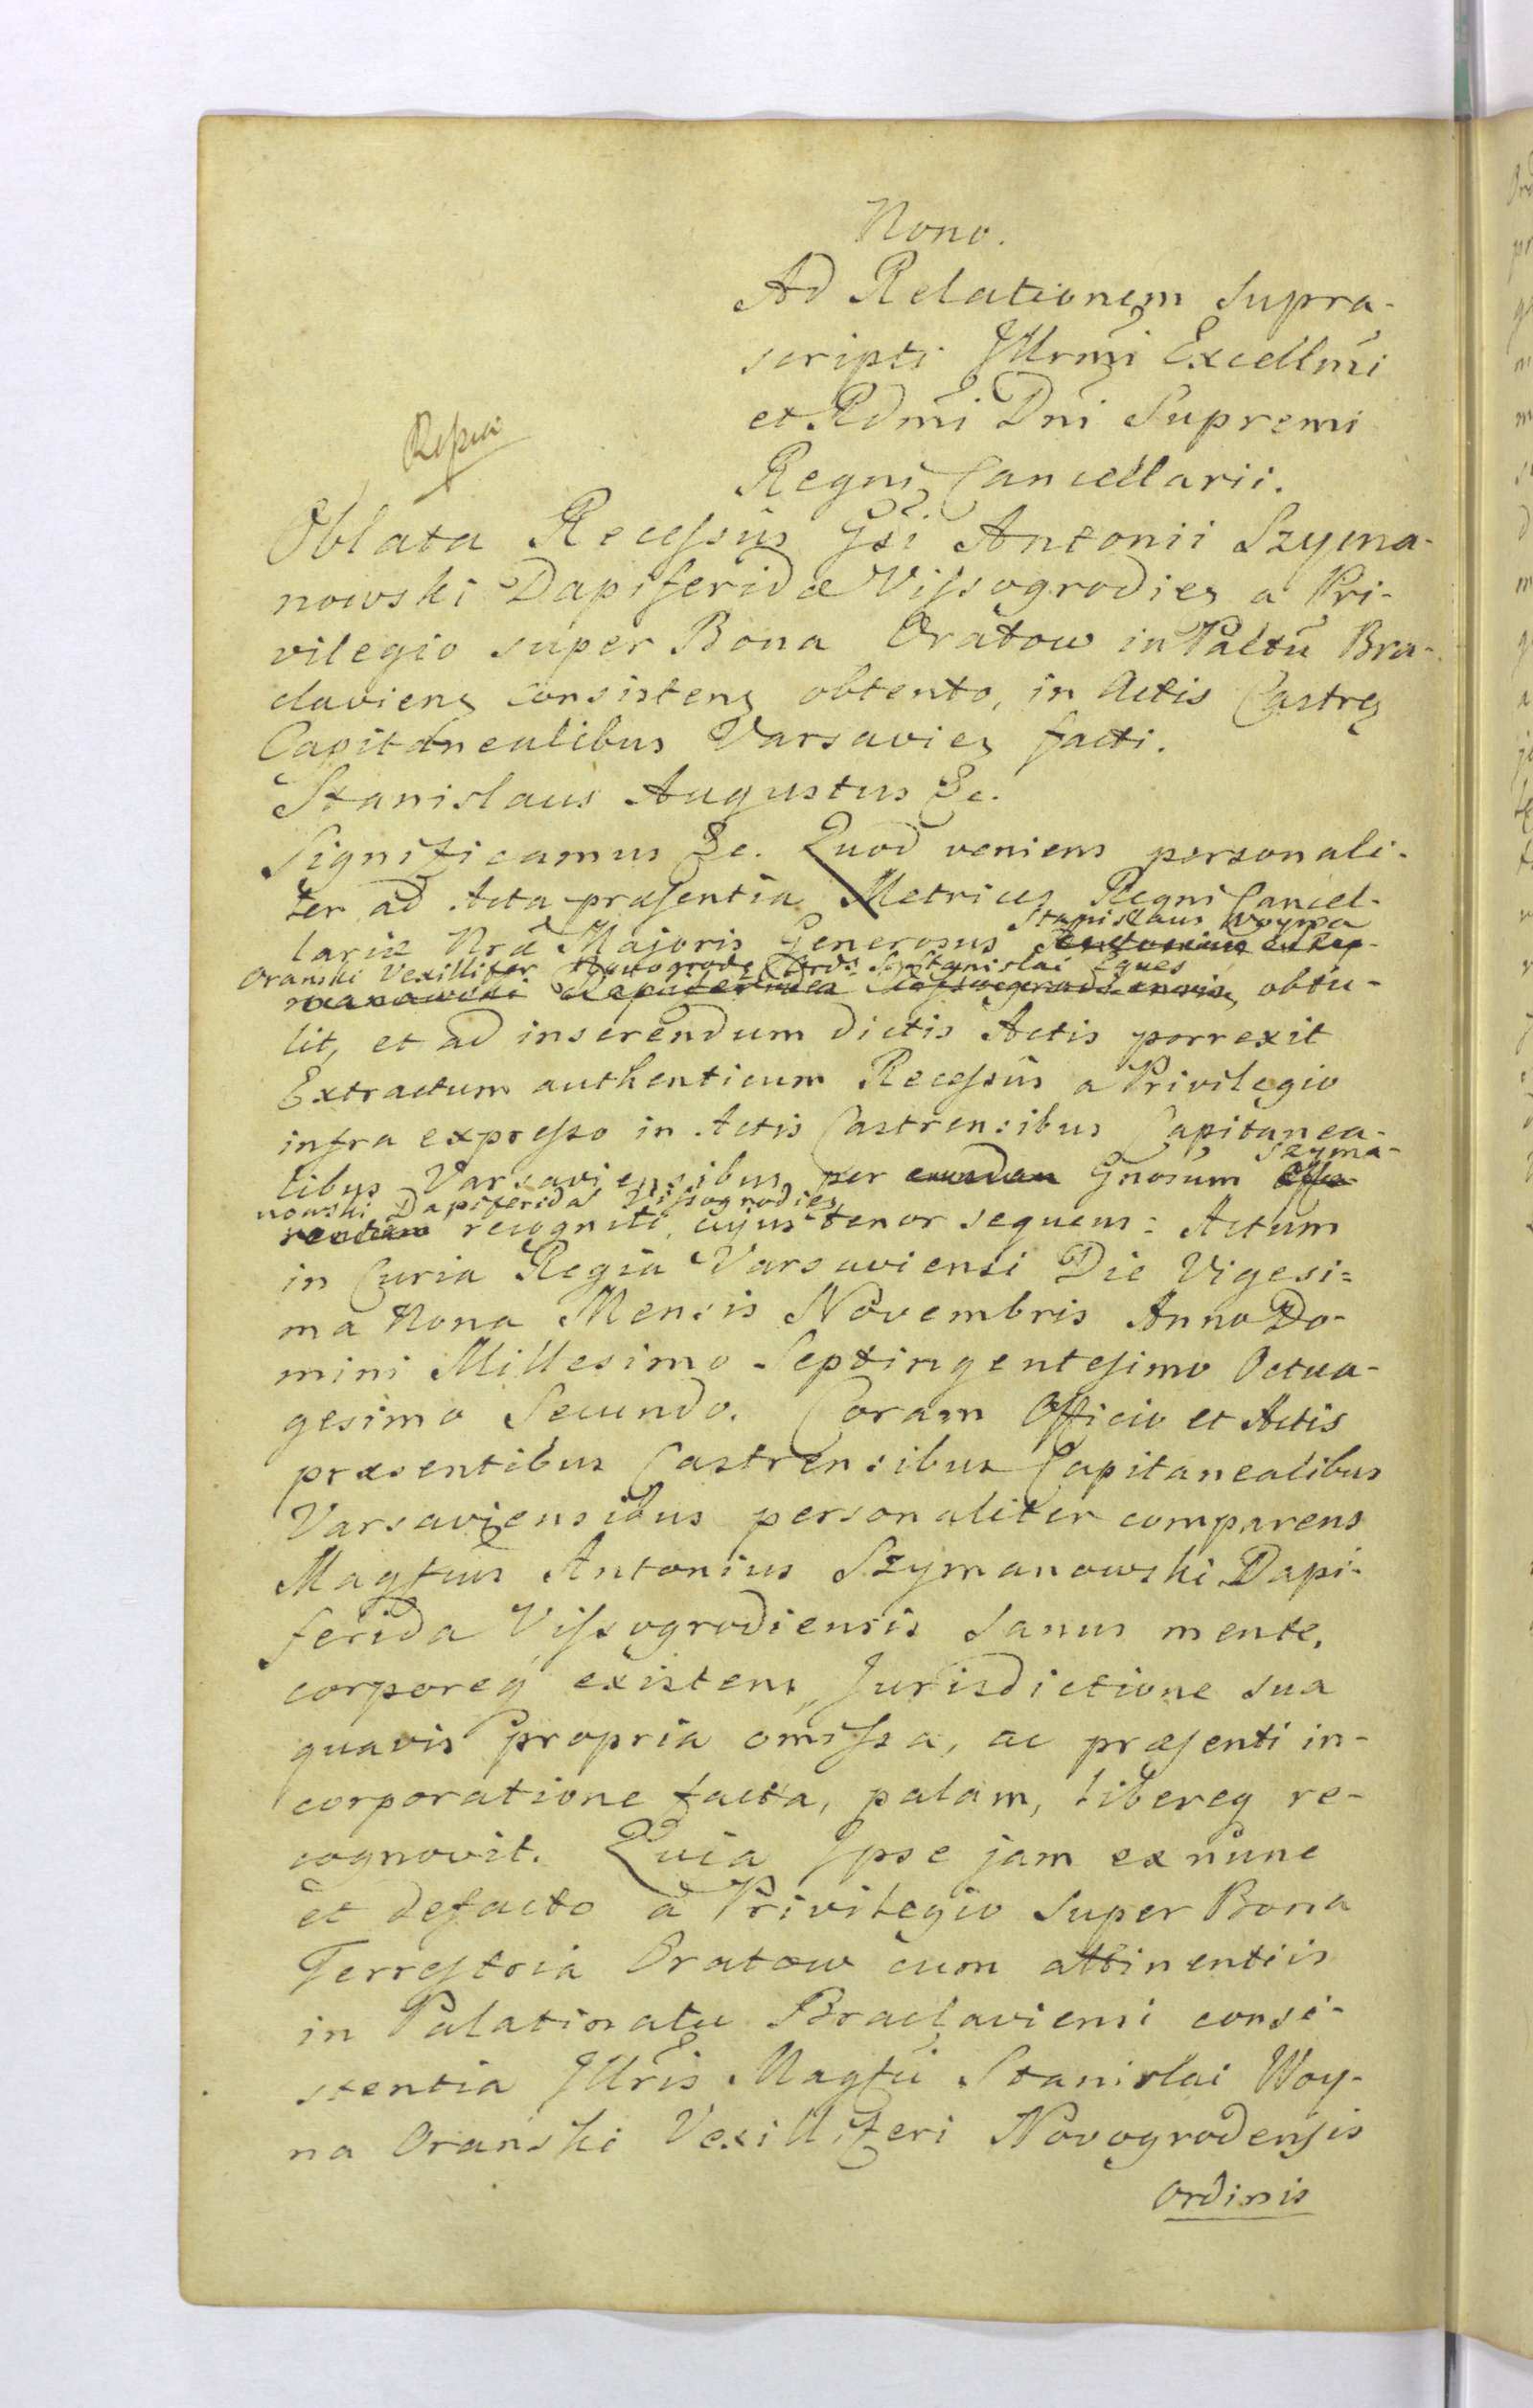 Nono.
Ad Relationem Supra-
scripti Jllrm̃i Excellm̃i
et Rdm̃i Dn̄i Supremi
Regni Cancellarii.
Oblata Recessûs Gsi Antonii Szyma-
nowski Dapiferidæ Vissogrodien̄ a Pri-
vilegio super Bona Oratow in Paltũ Bra-
clavien̄ consisten̄ obtento, in Actis Castren̄
Capitanealibus Varsavien̄ facti.
Stanislaus Augustus &c.
Significamus &c. Quod veniens personali-
ter ad Acta præsentia Metrices Regni Cancel-
Stanislaus Woyna
lariæ Nræ Majoris Generosus
Oranski Vexillifer Novogrod̄ Ord: S. Stanislai Eques
obtu-
lit, et ad inserendum dictis Actis porrexit
Extractum authenticum Recessûs a Privilegio
infra expresso in Actis Castrensibus Capitanea-
Szyma-
libus Varsaviensibus per eundem Gnosum
nowski Dapiferida Vissogrodien̄
recogniti, cujus tenor sequens: Actum
in Curia Regia Varsaviensi Die Vigesi=
ma Nona Mensis Novembris Anno Do-
mini Millesimo Septingentesimo Octua-
gesimo Secundo. Coram Officio et Actis
præsentibus Castrensibus Capitanealibus
Varsaviensibus personaliter comparens
Magfus Antonius Szymanowski Dapi-
ferida Vissogrodiensis Sanus mente,
corporeq̃ existens, Jurisdictione sua
quavis propria omissa, ac præsenti in-
corporatione facta, palam, libereq̃ re-
cognovit. Quia Jpse jam ex nunc
et defacto a Privilegio super Bona
Terrestria Oratow cum attinentiis
in Palatinatu Braclaviensi consi-
stentia Jllris Magfu Stanislai Woy-
na Oranski Vexilliferi Novogrodensis
Ordinis